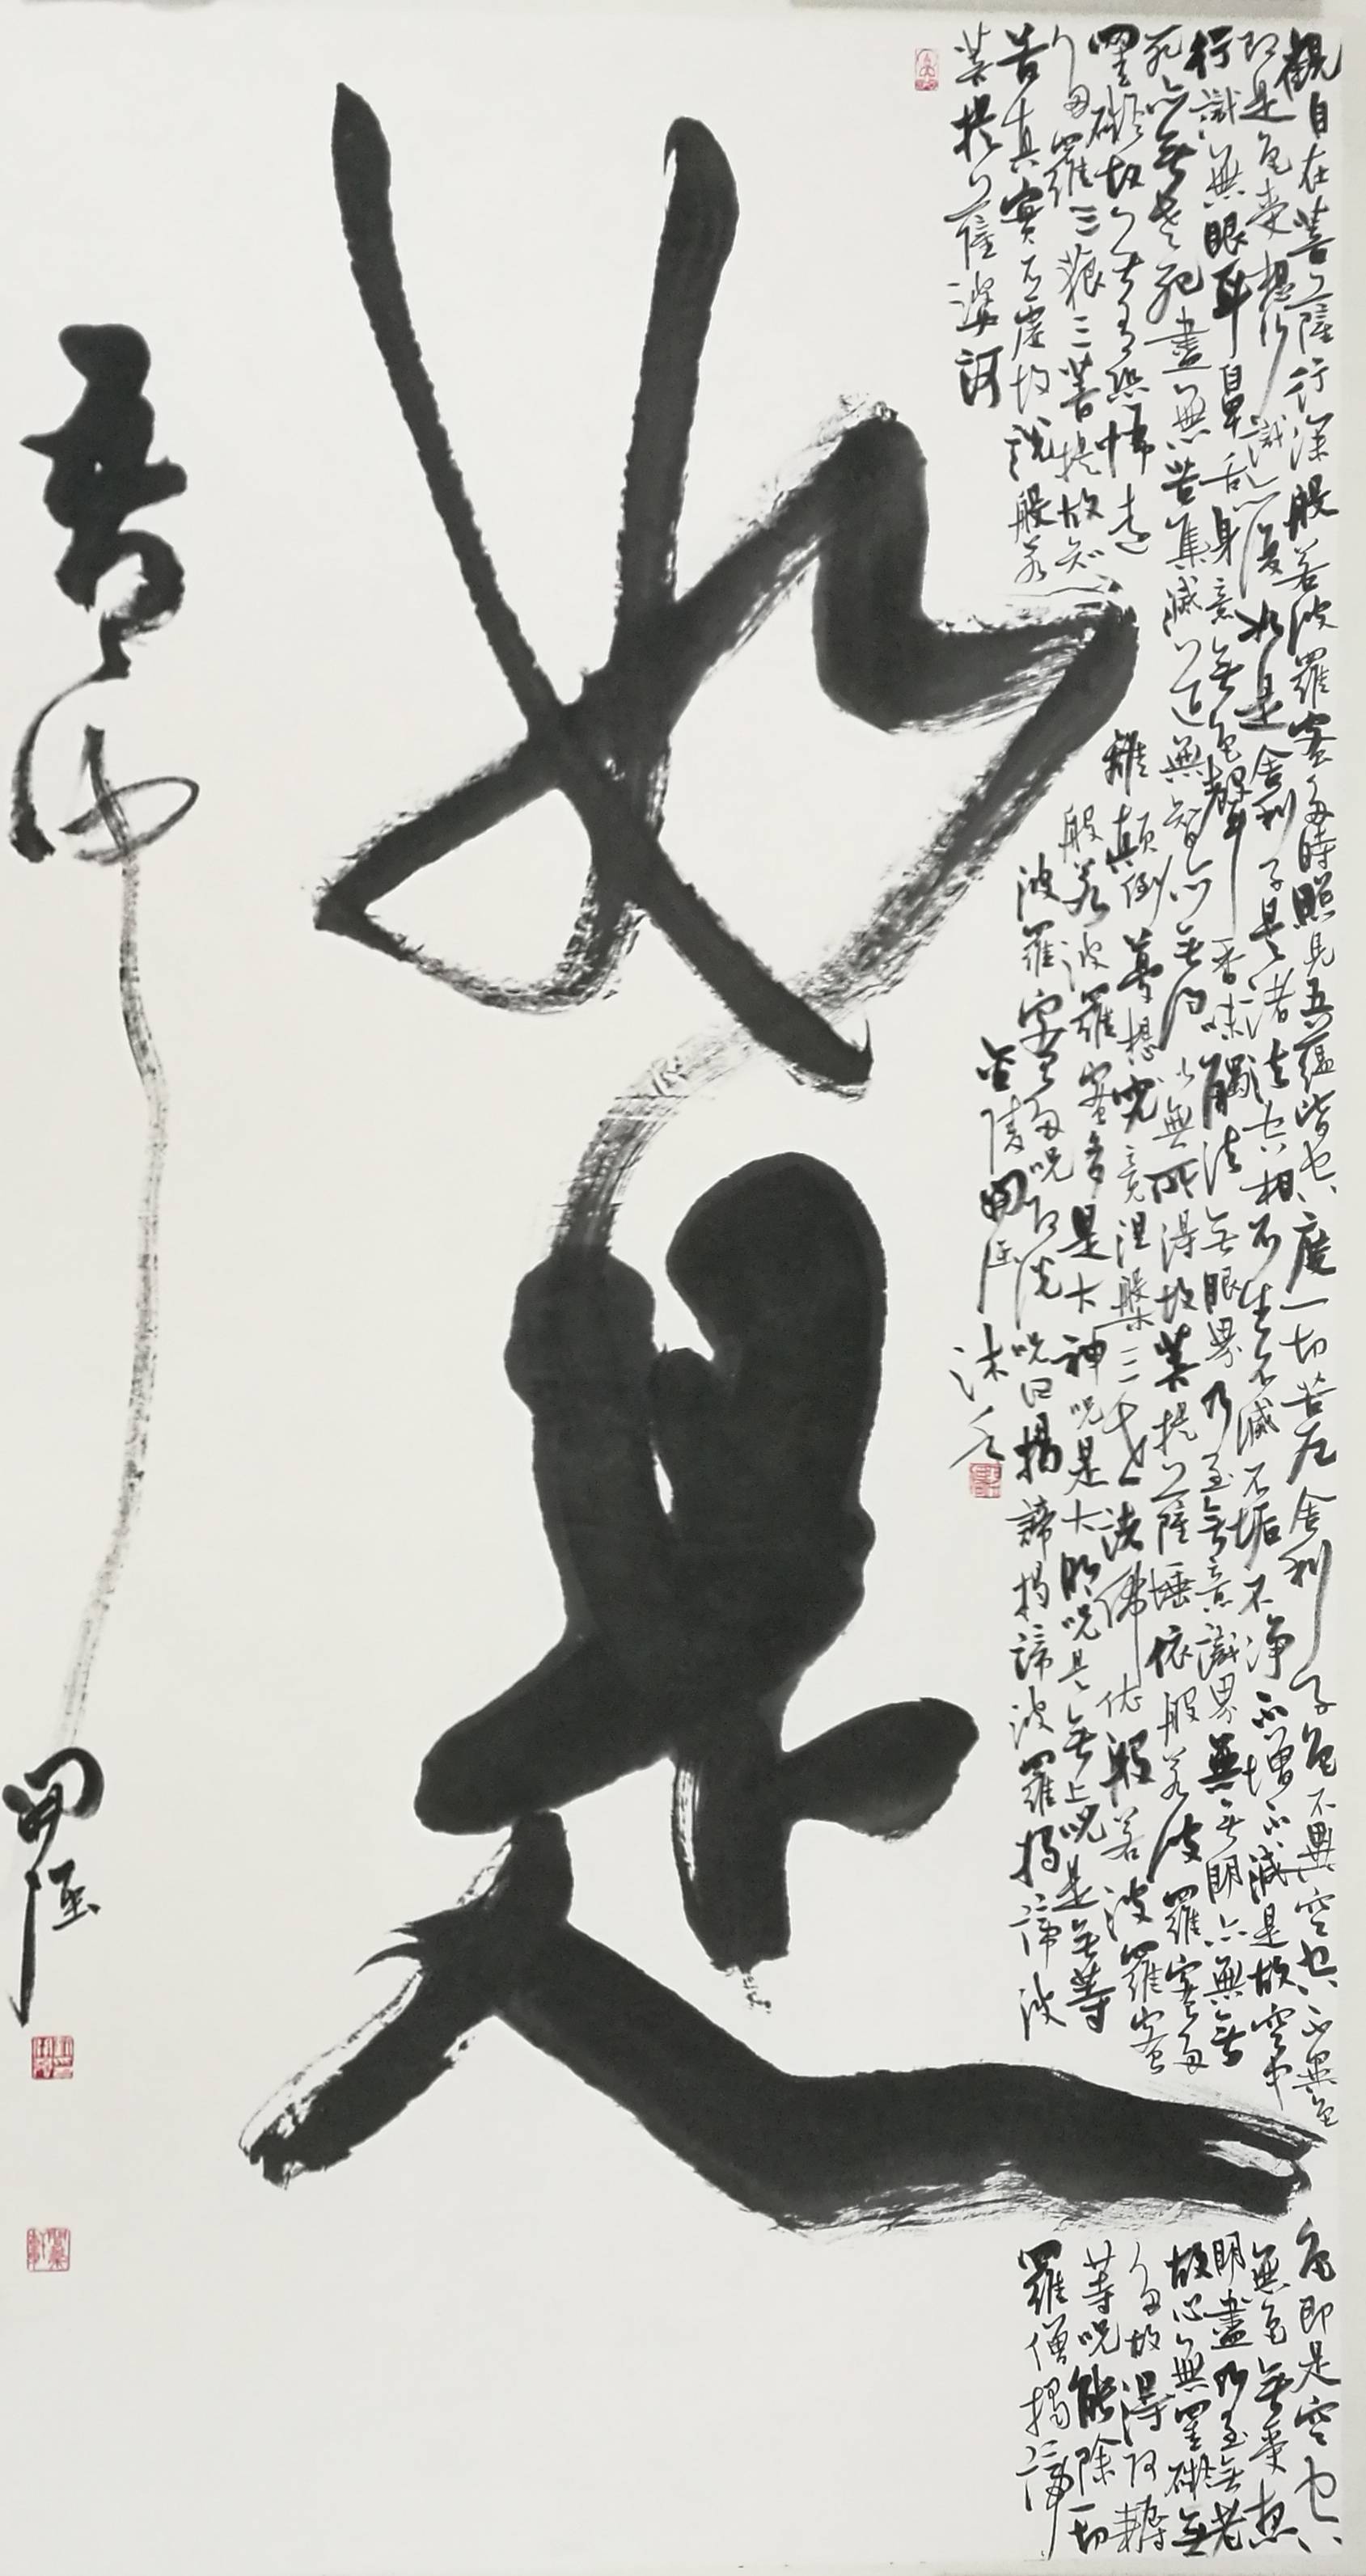 觀自在菩薩行深般若波羅蜜多時照見五蘊皆空度一切苦厄舍利子色不異空空不異色色即是空空
即是色受想行識亦復如是舍利子是諸法空相不生不滅不垢不淨不增不減是故空中無色無受想
行識無眼耳鼻舌身意無色聲香味觸法無眼界乃至無意識界無無明亦無無明盡乃至無老
死亦無老死盡無苦集滅道無智亦無得以無所得故菩提薩埵依般若波羅蜜多故心無罣礙無
罣礙故無有恐怖遠離顛倒夢想究竟涅槃三世諸佛依般若波羅蜜多故得阿耨
多羅三藐三菩提故知般若波羅蜜多是大神咒是大明咒是無上咒是無等等咒能除一切
苦真實不虛故說般若波羅蜜多咒即說咒曰揭諦揭諦波羅揭諦波羅僧揭諦
菩提薩婆訶
金陵
如是